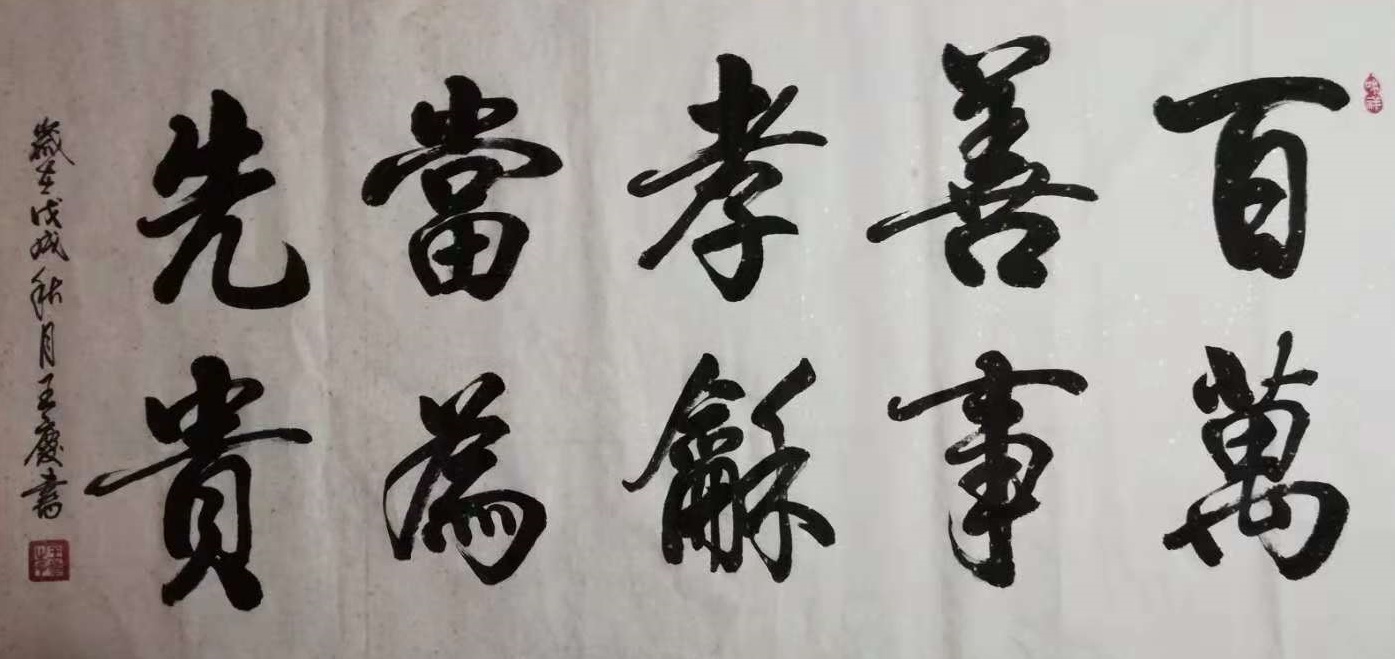 百善孝當先
萬事龢為貴
歲在戊戌秋月王慶書